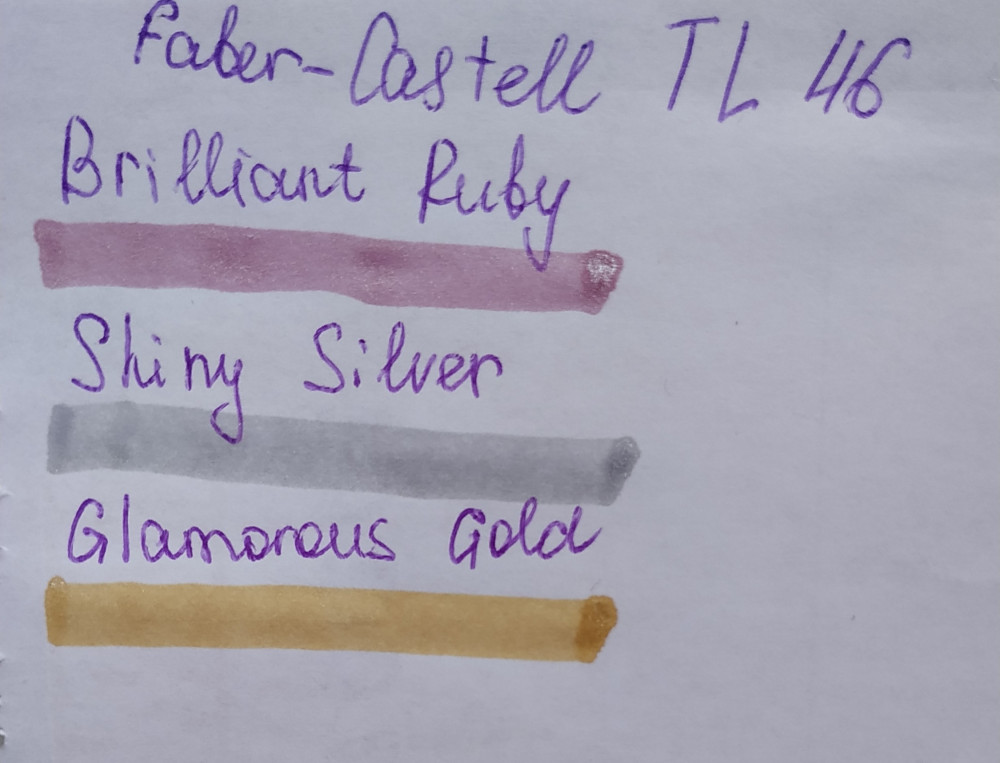 Faber-Castell TL 46
Brilliant Ruby
Shiny Silver
Glamorous Gold